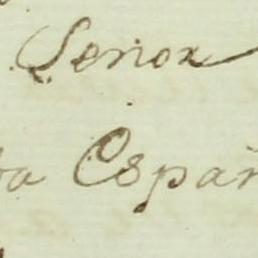 Señor
Españ